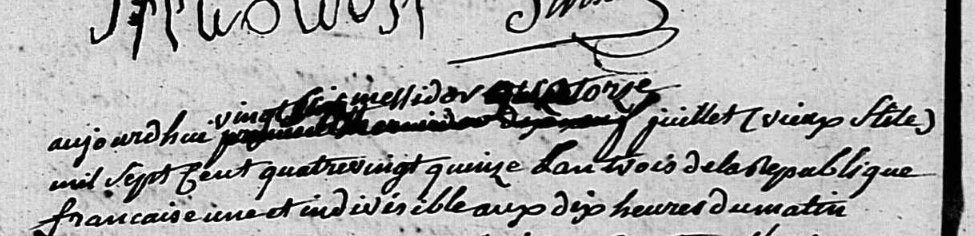 vingt six messidor quatorze
aujourdhui premier thermidor dix neuf juillet (vieux Stile)
mil Sept Cent quatrevingt quinze Lan trois dela Republique
francaise une et indivisible aux dix heures Dumatin